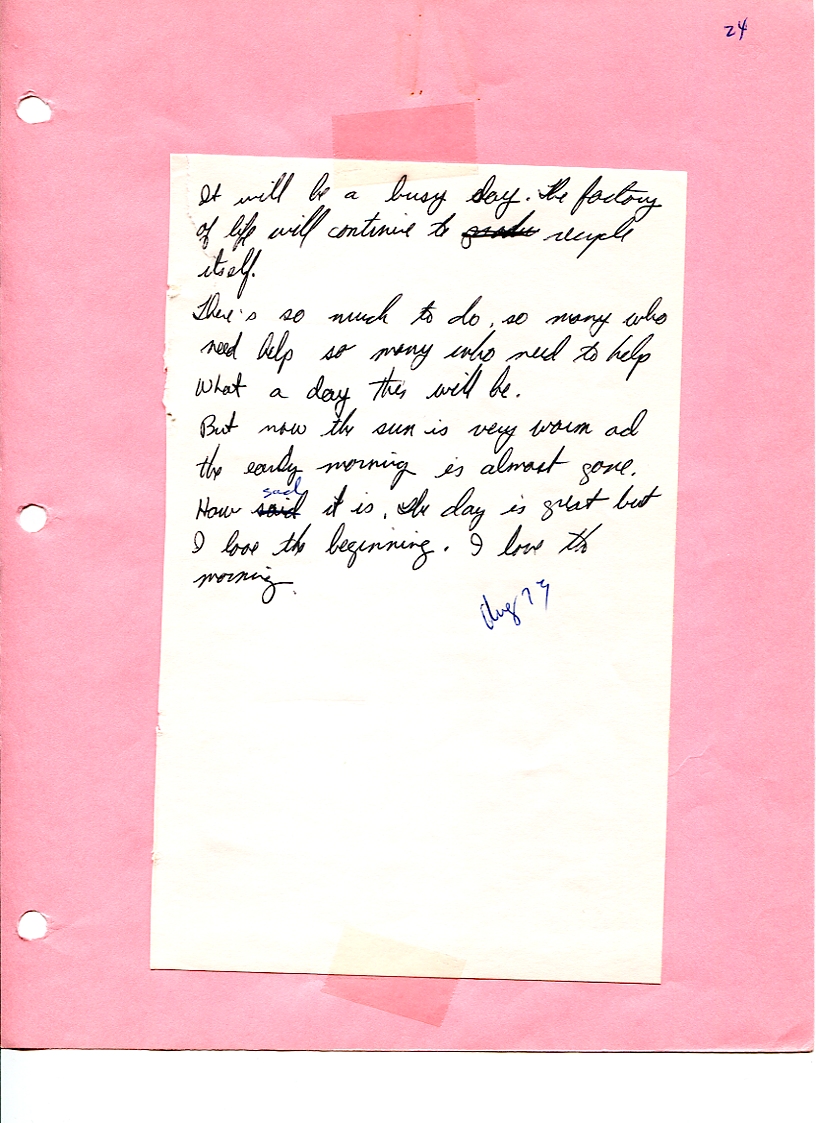 24
It will be a busy day. The factory
of life will continue to recycle
itself.
There's so much to do, so many who
need help so many who need to help
What a day this will be.
But now the sun is very warm ad
the early morning is almost gone.
sad
How said it is. The day is great but
I love the beginning. I love the
morning.
Aug 79